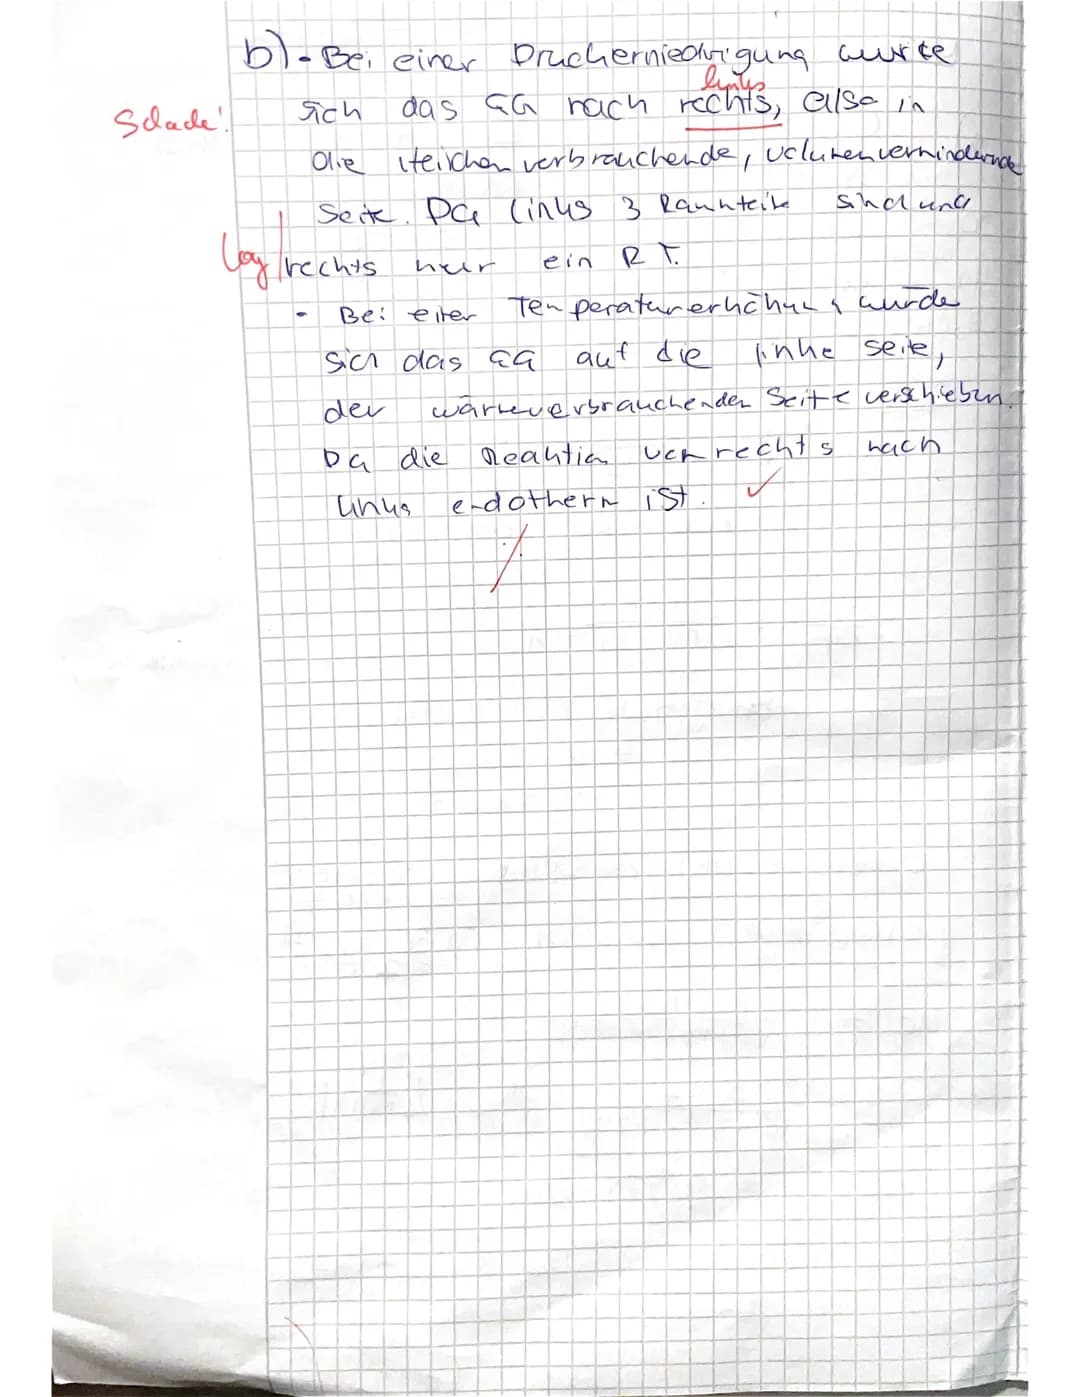 b) - Bei einer Druckerniedrigung würde
links
Schade! sich das GG nach rechts, also in
die teilchenverbrauchende, volumenvermindernde
Seite. Da links 3 Raumteile sind und
Log rechts nur ein R T.
- Bei einer Temperaturerhöhung würde
sich das GG auf die linke Seite,
der wärmeverbrauchenden Seite verschieben.
Da die Reaktion von rechts nach
links endotherm ist. ✓